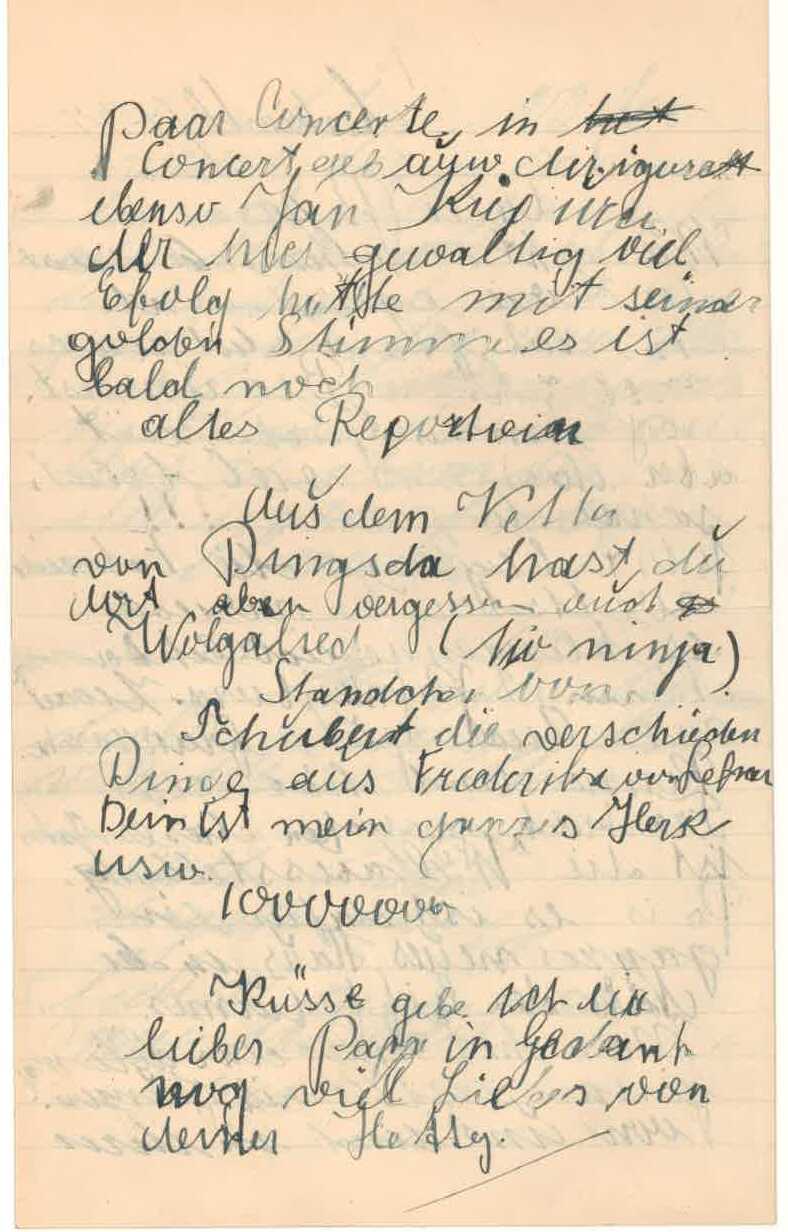 paar Concerte, in het
Concertgebäuw dirigiert
ebenso Jan Kiepura
der hier gewaltig viel
Efolg hatte mit seiner
golden Stimme es ist
bald noch
altes
Aus dem Vetter
von Dingsda hast du
dort aber vergessen auch
Wolgalied ( )
Standchen von
Schubert die verschieden
Dinge aus Frederike von Lehar
Dein ist mein ganzes Herk
usw.
Küsse gebe ich dir
lieber Papa in Gedank
nog viel Liebes von
deiner Hetty.